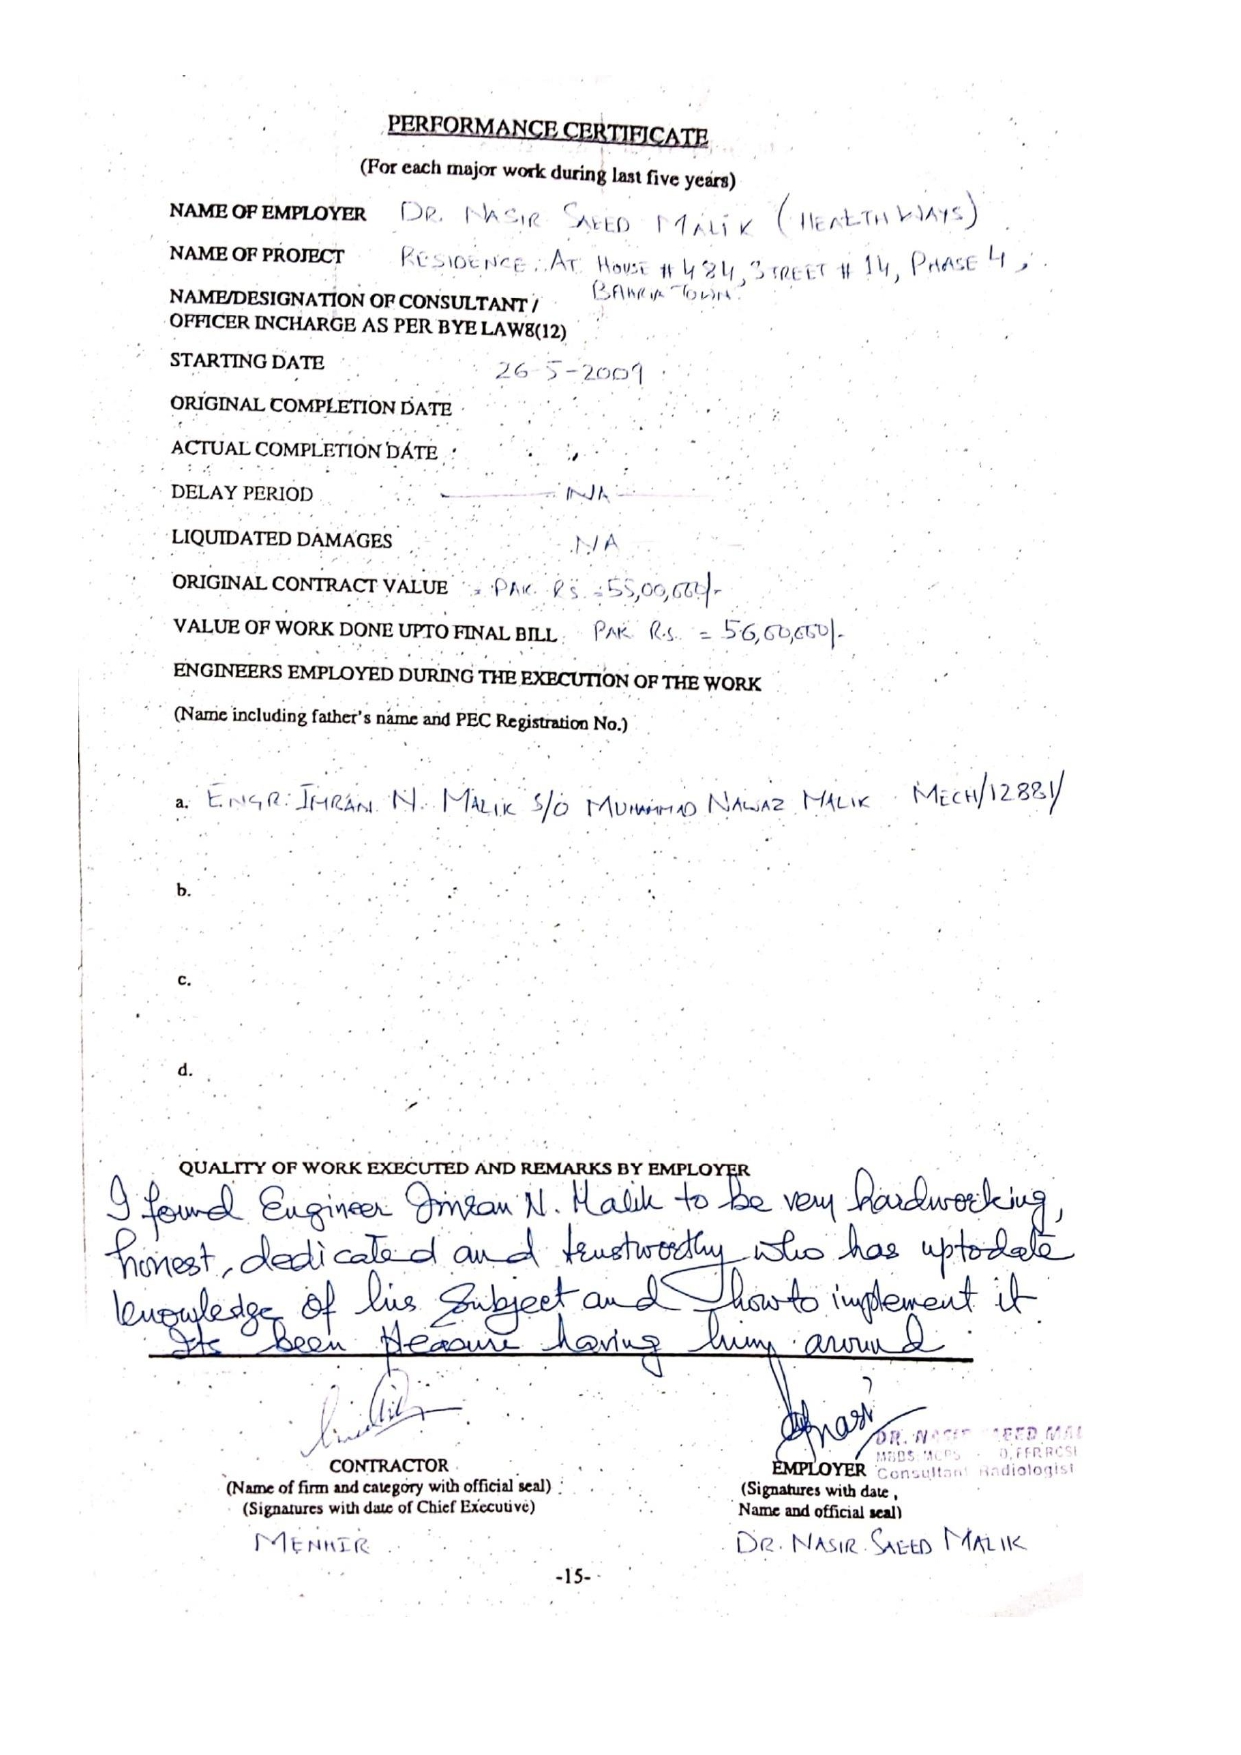 PERFORMANCE CERTIFICATE
(For each major work during last five years)
NAME OF EMPLOYER DR. NASIR SAEED MALIK (HEALTH WAYS)
NAME OF PROJECT RESIDENCE: AT HOUSE # 484, STREET # 14, PHASE 4,
BAHRIA TOWN.
NAME/DESIGNATION OF CONSULTANT /
OFFICER INCHARGE AS PER BYE LAW8(12)
STARTING DATE 26-5-2009
ORIGINAL COMPLETION DATE
ACTUAL COMPLETION DATE
DELAY PERIOD N/A
LIQUIDATED DAMAGES N/A
ORIGINAL CONTRACT VALUE = PAK RS. = 55,00,000/-
VALUE OF WORK DONE UPTO FINAL BILL PAK RS. = 56,60,000/-
ENGINEERS EMPLOYED DURING THE EXECUTION OF THE WORK
(Name including father's name and PEC Registration No.)
a. ENGR: IMRAN N. MALIK S/O MUHAMMAD NAWAZ MALIK MECH/12881/
b.
c.
d.
QUALITY OF WORK EXECUTED AND REMARKS BY EMPLOYER
I found Engineer Imran N. Malik to be very hardworking,
honest, dedicated and trustworthy who has uptodate
knowledge of his Subject and how to implement it
Its been pleasure having him around
DR. SAEED MAL
MBBS, MCPS D, FFRRCSI
CONTRACTOR EMPLOYER Consultant Radiologist
(Name of firm and category with official seal) (Signatures with date,
(Signatures with date of Chief Executive) Name and official seal)
MENHIR DR. NASIR SAEED MALIK
-15-